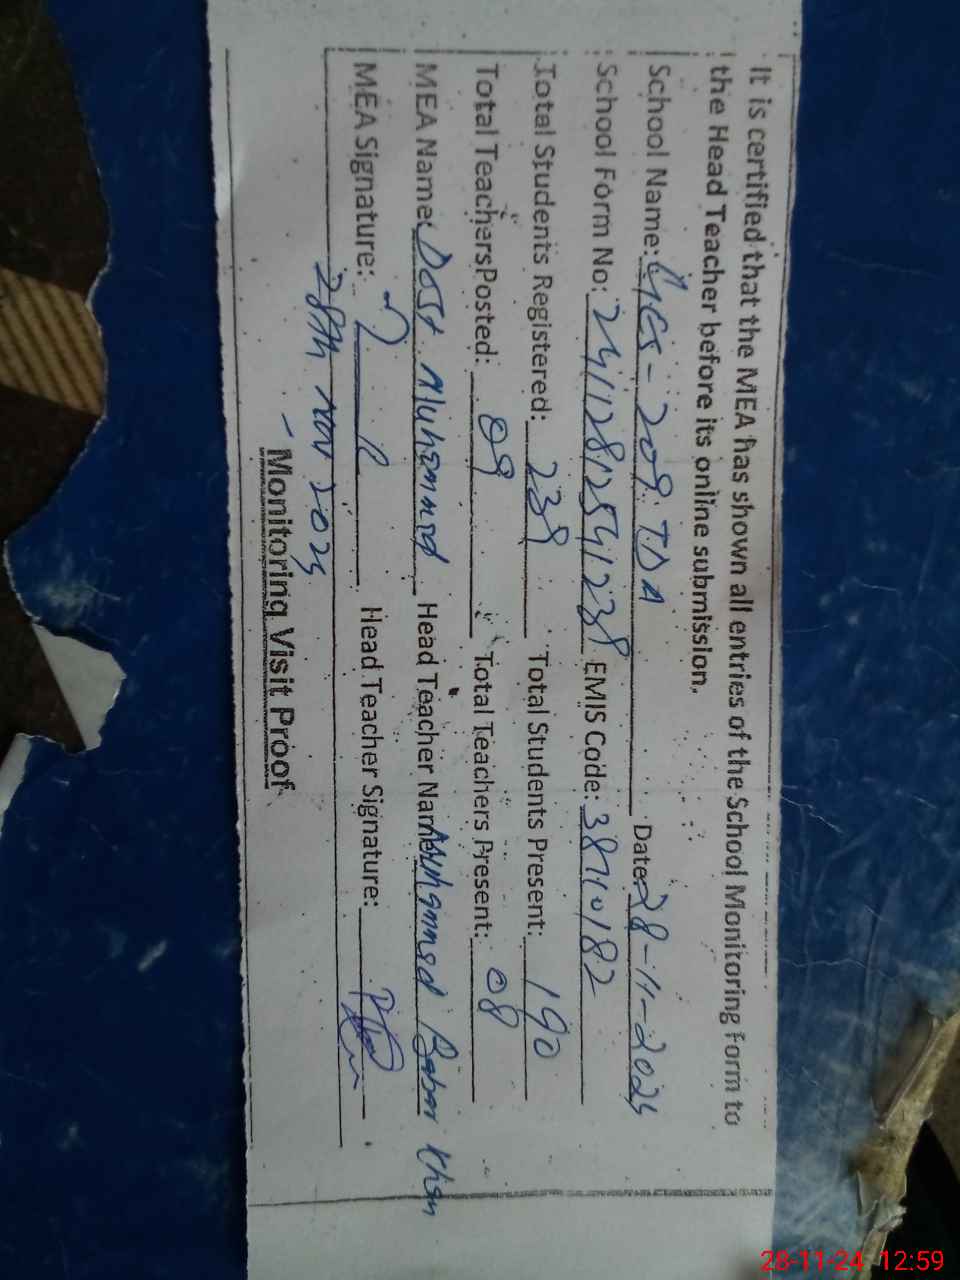 It is certified that the MEA has shown all entries of the School Monitoring Form to
the Head Teacher before its online submission.
School Name: GES-209 TDA Date: 28-11-2024
School Form No: 241128125541238 EMIS Code: 38710182
Total Students Registered: 239 Total Students Present: 190
Total Teachers Posted: 09 Total Teachers Present: 08
MEA Name: Dost Muhammad Head Teacher Name: Muhammad Babar Khan
MEA Signature: Head Teacher Signature:
28th Nov 2024
Monitoring Visit Proof
28-11-24 12:59